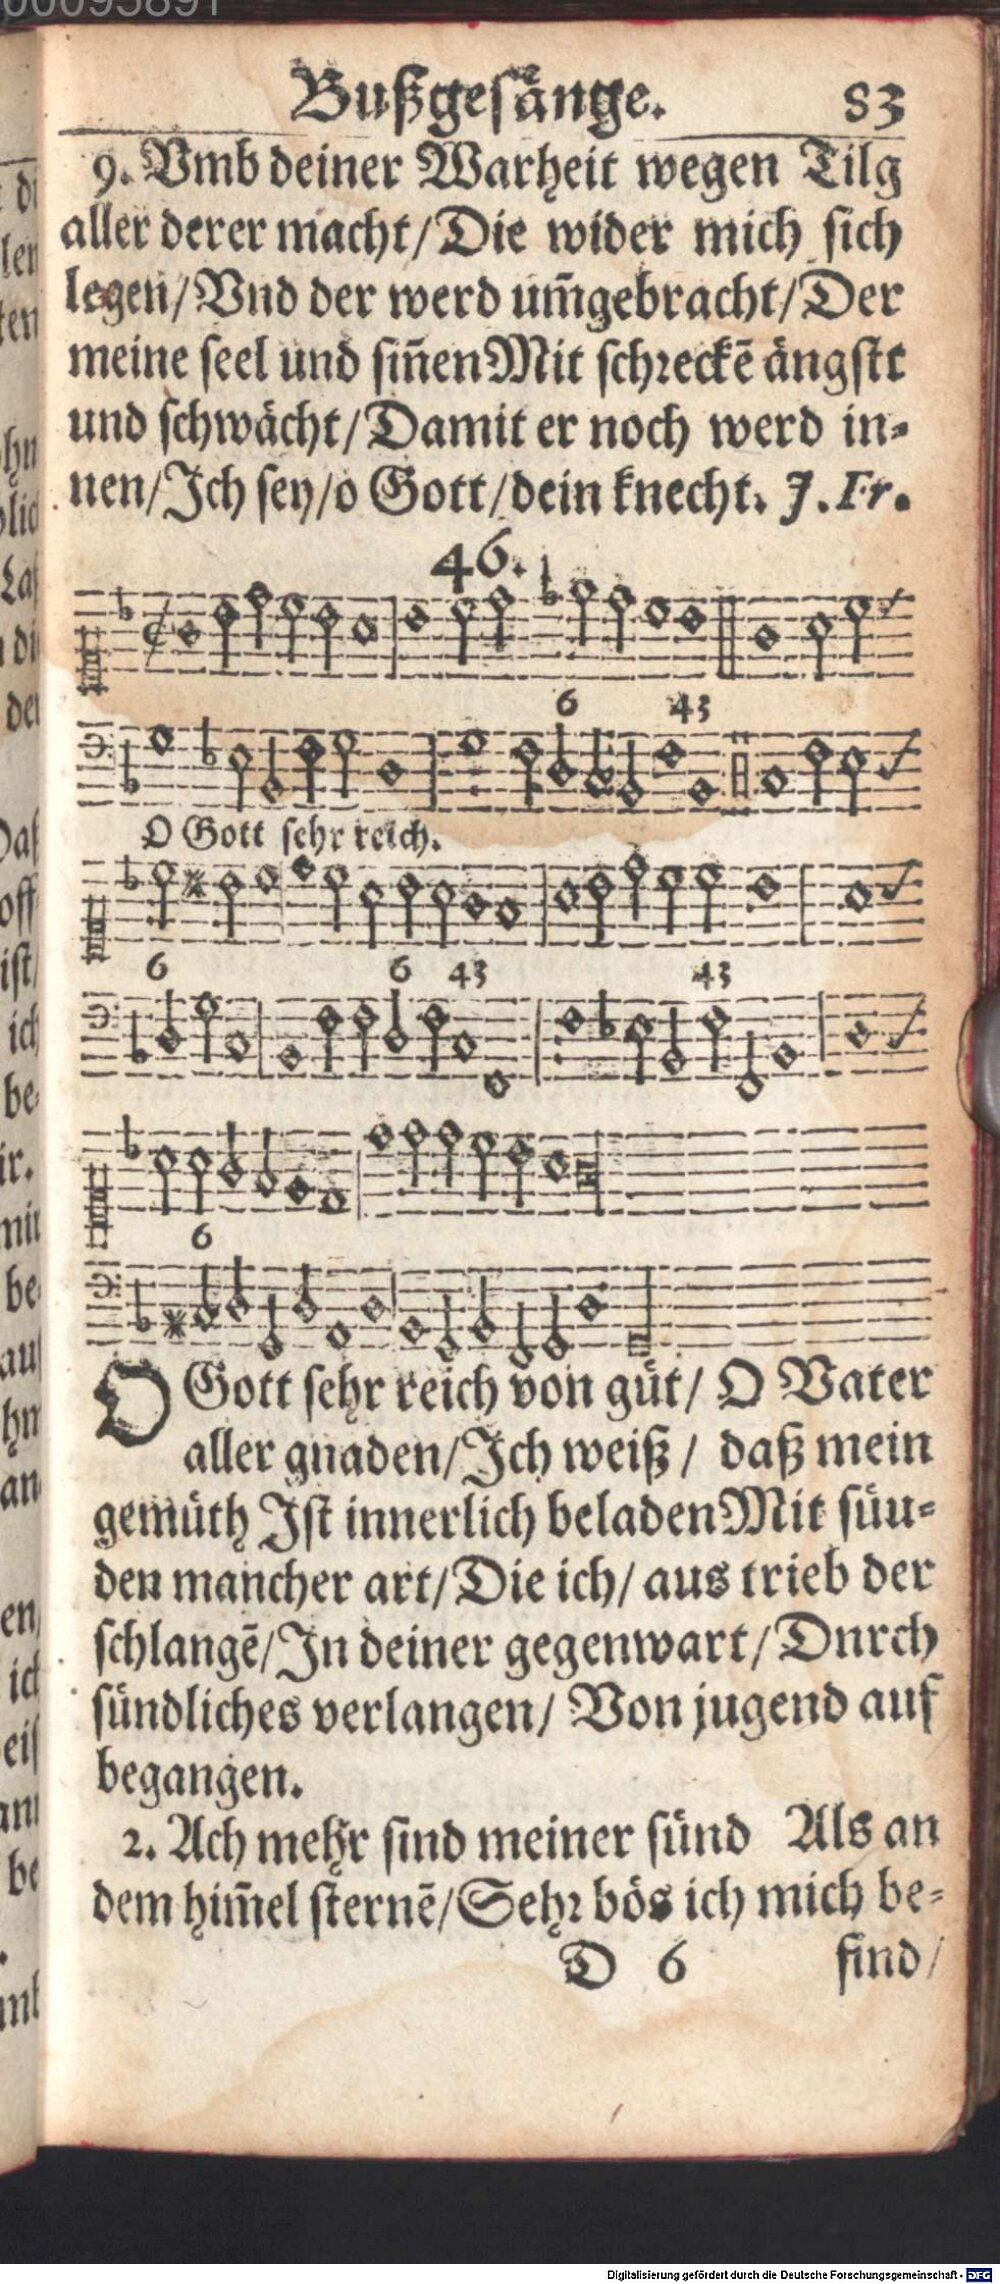 00095891
Bußgesänge. 83
9. Vmb deiner Warheit wegen Tilg
aller derer macht/Die wider mich sich
legen/Vnd der werd um̄gebracht/Der
meine seel und sin̄en Mit schreckē ängstt
und schwächt/Damit er noch werd in-
nen/Ich sey/o Gott/dein knecht. J. Fr.
46.
6 43
O Gott sehr reich.
6 6 43 43
6
O Gott sehr reich von güt/ O Vater
aller gnaden/Ich weiß/ daß mein
gemüth Ist innerlich beladen Mit süu-
den mancher art/Die ich/ aus trieb der
schlangē/In deiner gegenwart/Dnrch
sündliches verlangen/ Von jugend auf
begangen.
2. Ach mehr sind meiner sünd Als an
dem him̄el sternē/Sehr bös ich mich be-
D 6 find/
Digitalisierung gefördert durch die Deutsche Forschungsgemeinschaft - DFG